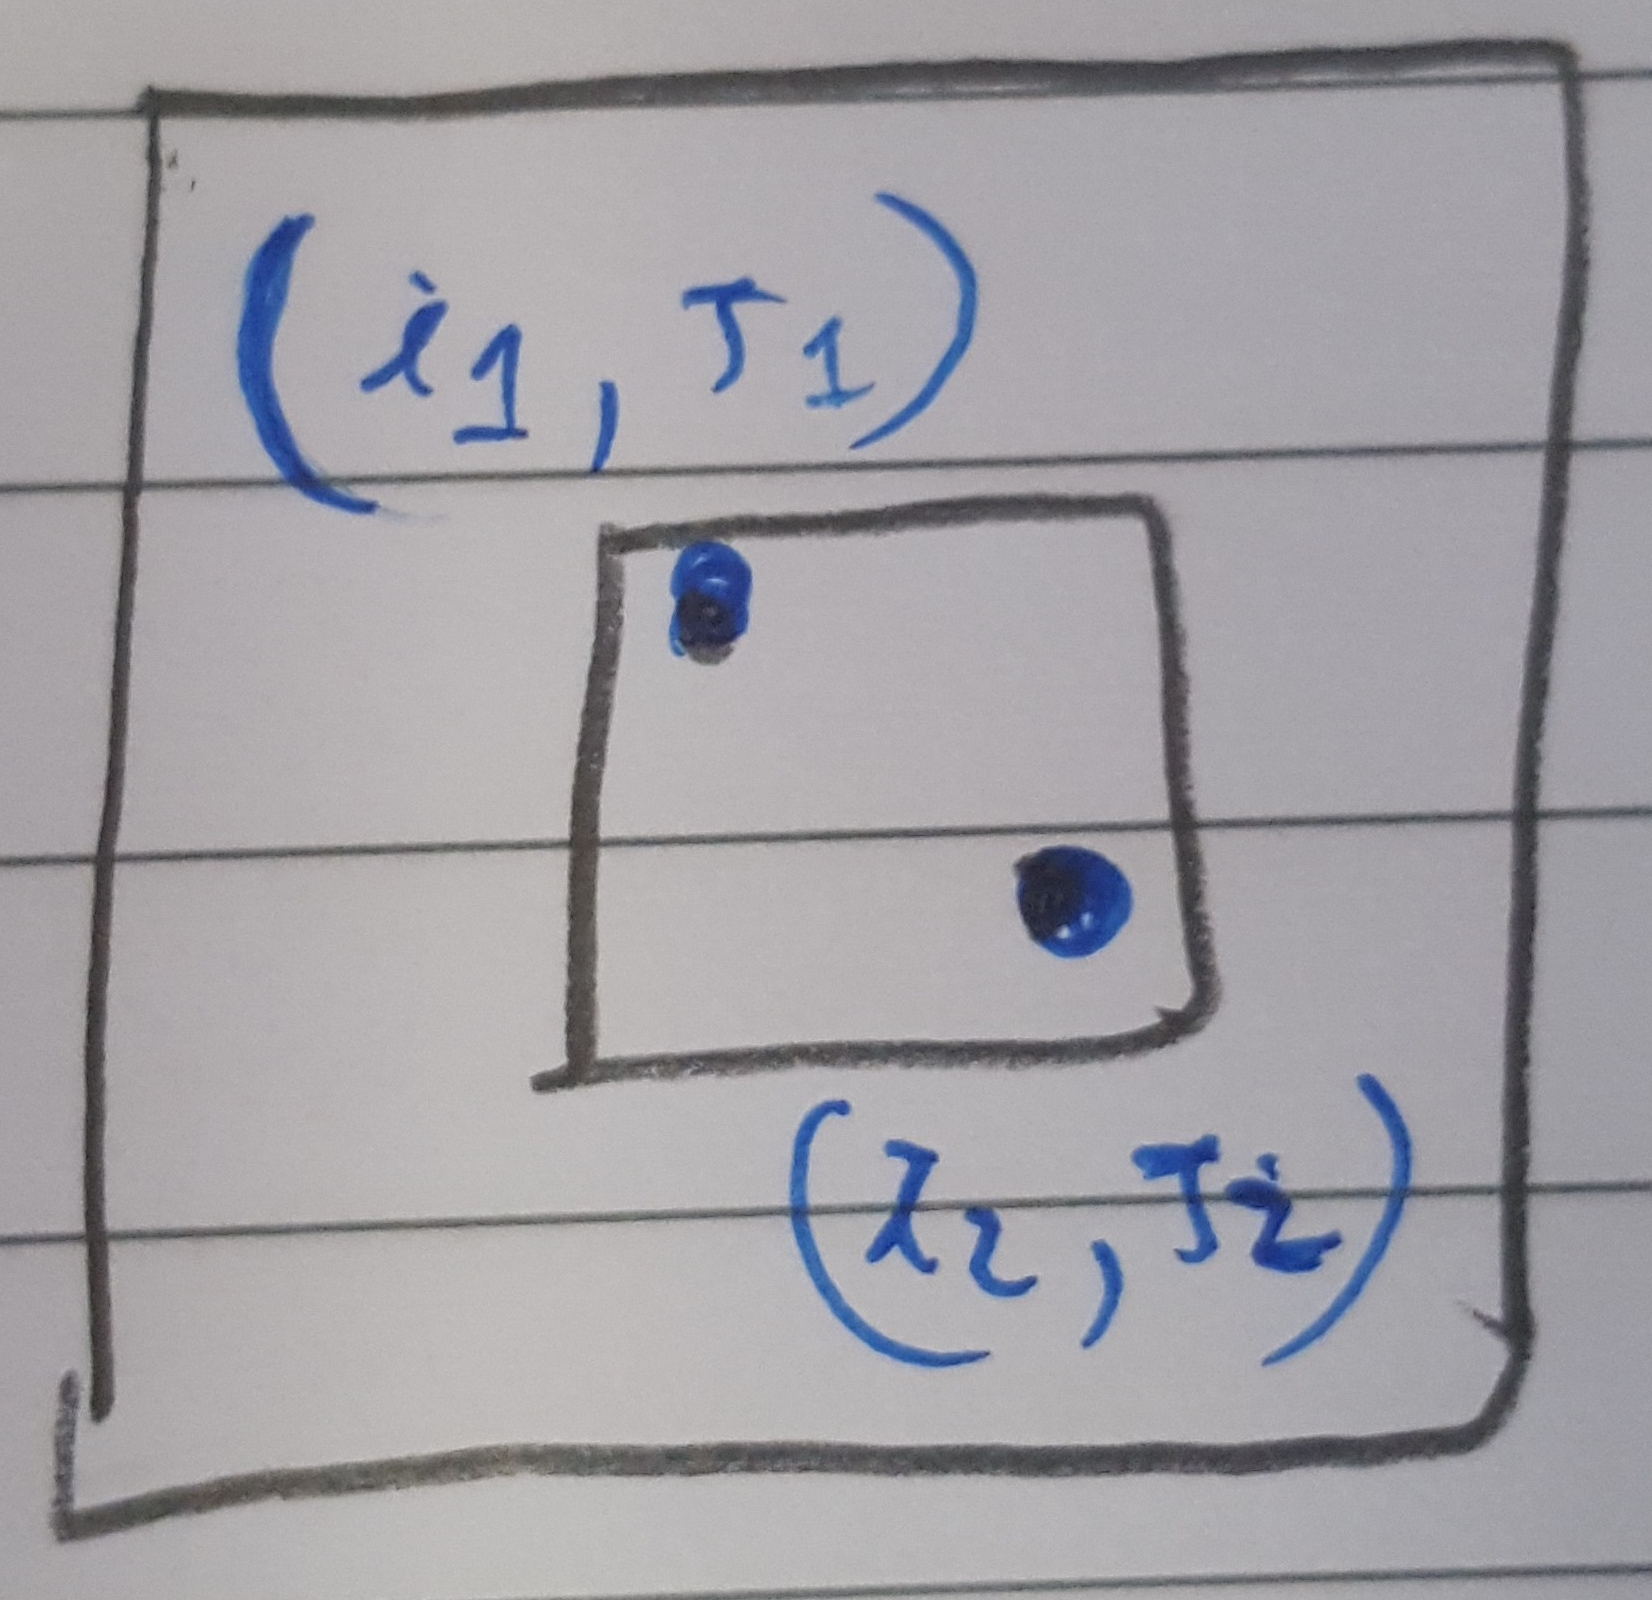 (i1, J1)
(i2, J2)